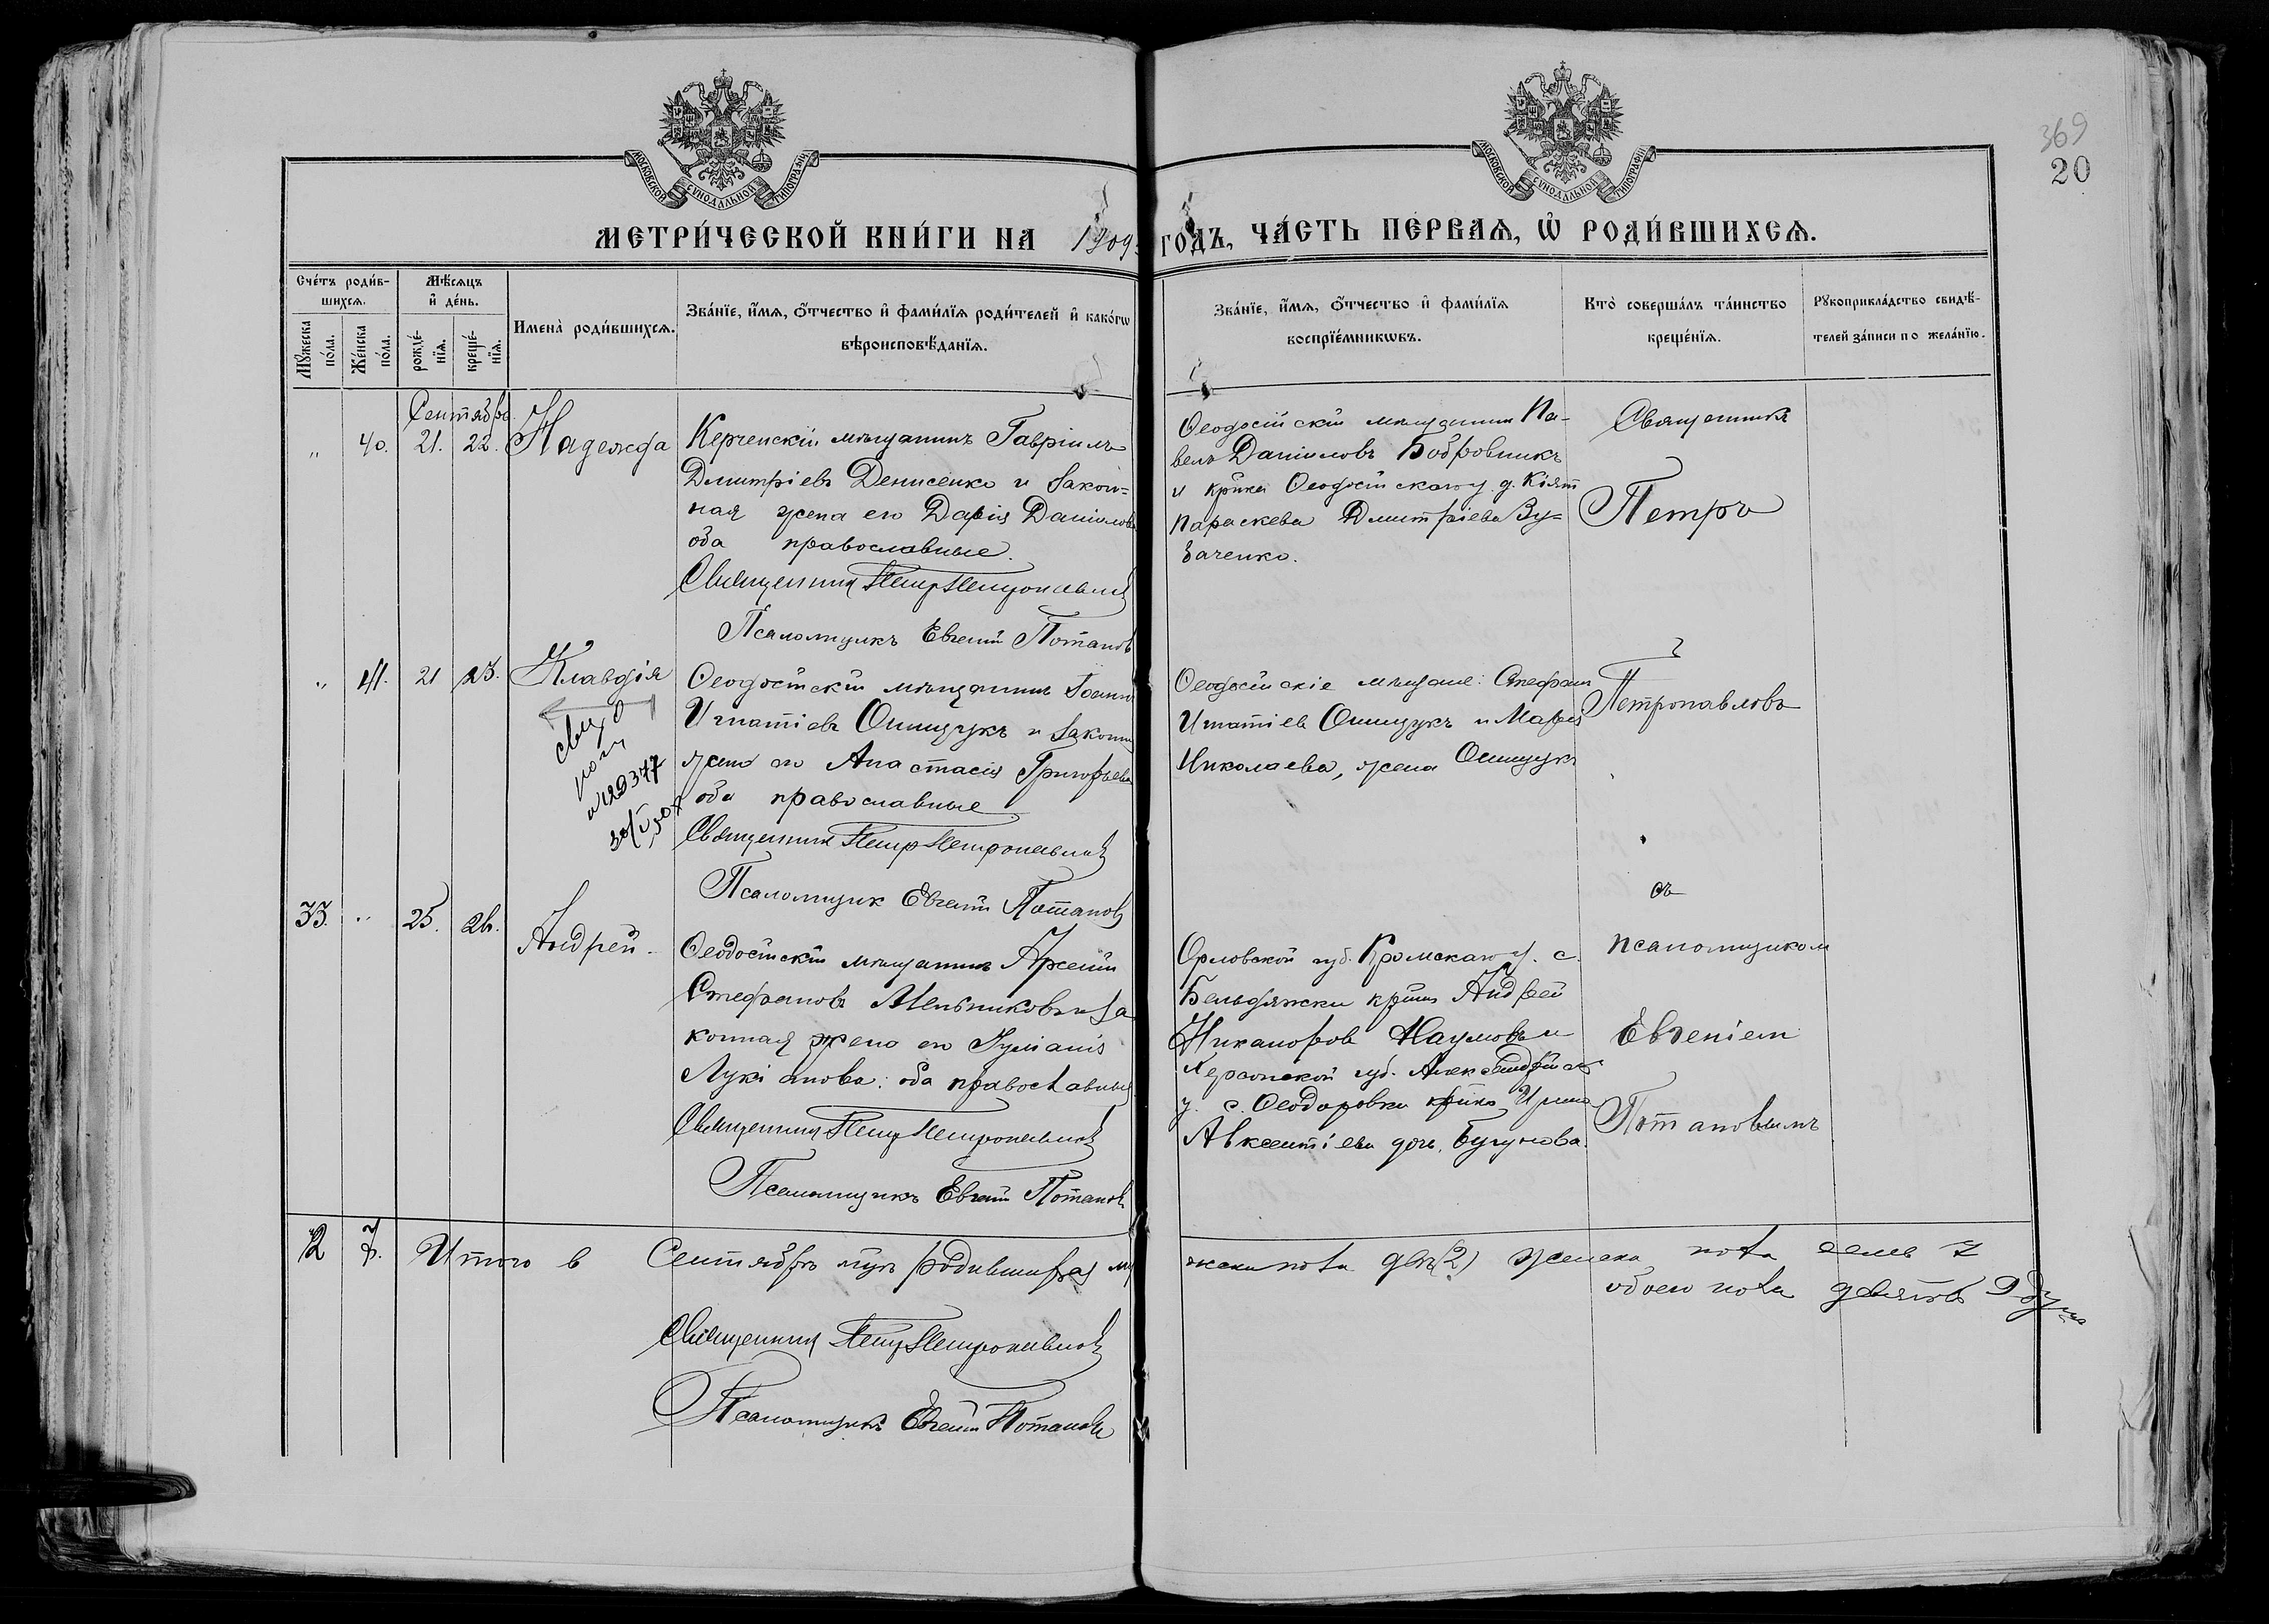 369
20
МОСКОВСКОЙ СУНОДАЛЬНОЙ ТИПОГРАФІИ
МОСКОВСКОЙ СУНОДАЛЬНОЙ ТИПОГРАФІИ
МЕТРИ́ЧЕСКОЙ КНИ́ГИ НА 1909 ГОДЪ, ЧА́СТЬ ПЕ́РВАѦ, Ѡ РОДИ́ВШИХСѦ.
Сче́тъ роди́в-
шихсѧ.
Мꙋ́жеска по́ла.
Же́нска по́ла.
Мѣ́сѧцъ и де́нь.
рожде́-
нїѧ.
креще́-
нїѧ.
Имена̀ роди́вшихсѧ.
Зва́нїе, и́мѧ, о́тчество и фами́лїѧ роди́телей и како́гѡ
вѣроисповѣ́данїѧ.
Зва́нїе, и́мѧ, о́тчество и фами́лїѧ
воспрїе́мникѡвъ.
Кто̀ соверша́лъ та́инство
креще́нїѧ.
Рꙋкоприкла́дство свидѣ́-
телей за́писи по жела́нїю.
Сентябрь
„ 40. 21. 22. Надежда
Керченскій мѣщанинъ Гавріилъ
Дмитріевъ Денисенко и закон=
ная жена его Дарія Даніилова
оба православные.
Священникъ Петръ Петропавловъ
Псаломщикъ Евгеній Потаповъ
Ѳеодосійскій мѣщанинъ Па-
велъ Даніиловъ Бобровникъ
и кр-нка Ѳеодосійскаго у. д. Кіят
Параскева Дмитріева Зу=
баченко.
Священникъ
Петръ
„ 41. 21 23. Клавдія
свид
пол
№ 29377
Ѳеодосійскій мѣщанинъ Іоаннъ
Игнатіевъ Онищукъ и законн
жена его Анастасія Григорьева
оба православные
Священникъ Петръ Петропавловъ
Псаломщик Евгеній Потаповъ
Ѳеодосійскіе мѣщане: Стефан
Игнатіев Онищукъ и Марія
Николаева, жена Онищук
Петропавловъ
съ
33. „ 25. 26. Андрей
Ѳеодосійскій мѣщанинъ Арсеній
Стефановъ Мельниковъ и за
конная жена его Іуліанія
Лукіанова: оба православные
Священникъ Петръ Петропавловъ
Псаломщикъ Евгеній Потаповъ
Орловской губ. Кромскаго у. с.
Бельдяжки кр-нин Андрей
Никаноров Наумовъ и
Херсонской губ. Александрійск
у. с. Ѳеодоровки кр-нка Ирина
Авксентіева доч. Бугунова.
псаломщиком
Евгеніем
Потаповымъ
2 7. Итого в Сентябрѣ мѣс. родившихся му
жска пола два (2) женска пола семь 7
обоего пола девять 9 душ
Священникъ Петръ Петропавловъ
Псаломщикъ Евгеній Потаповъ